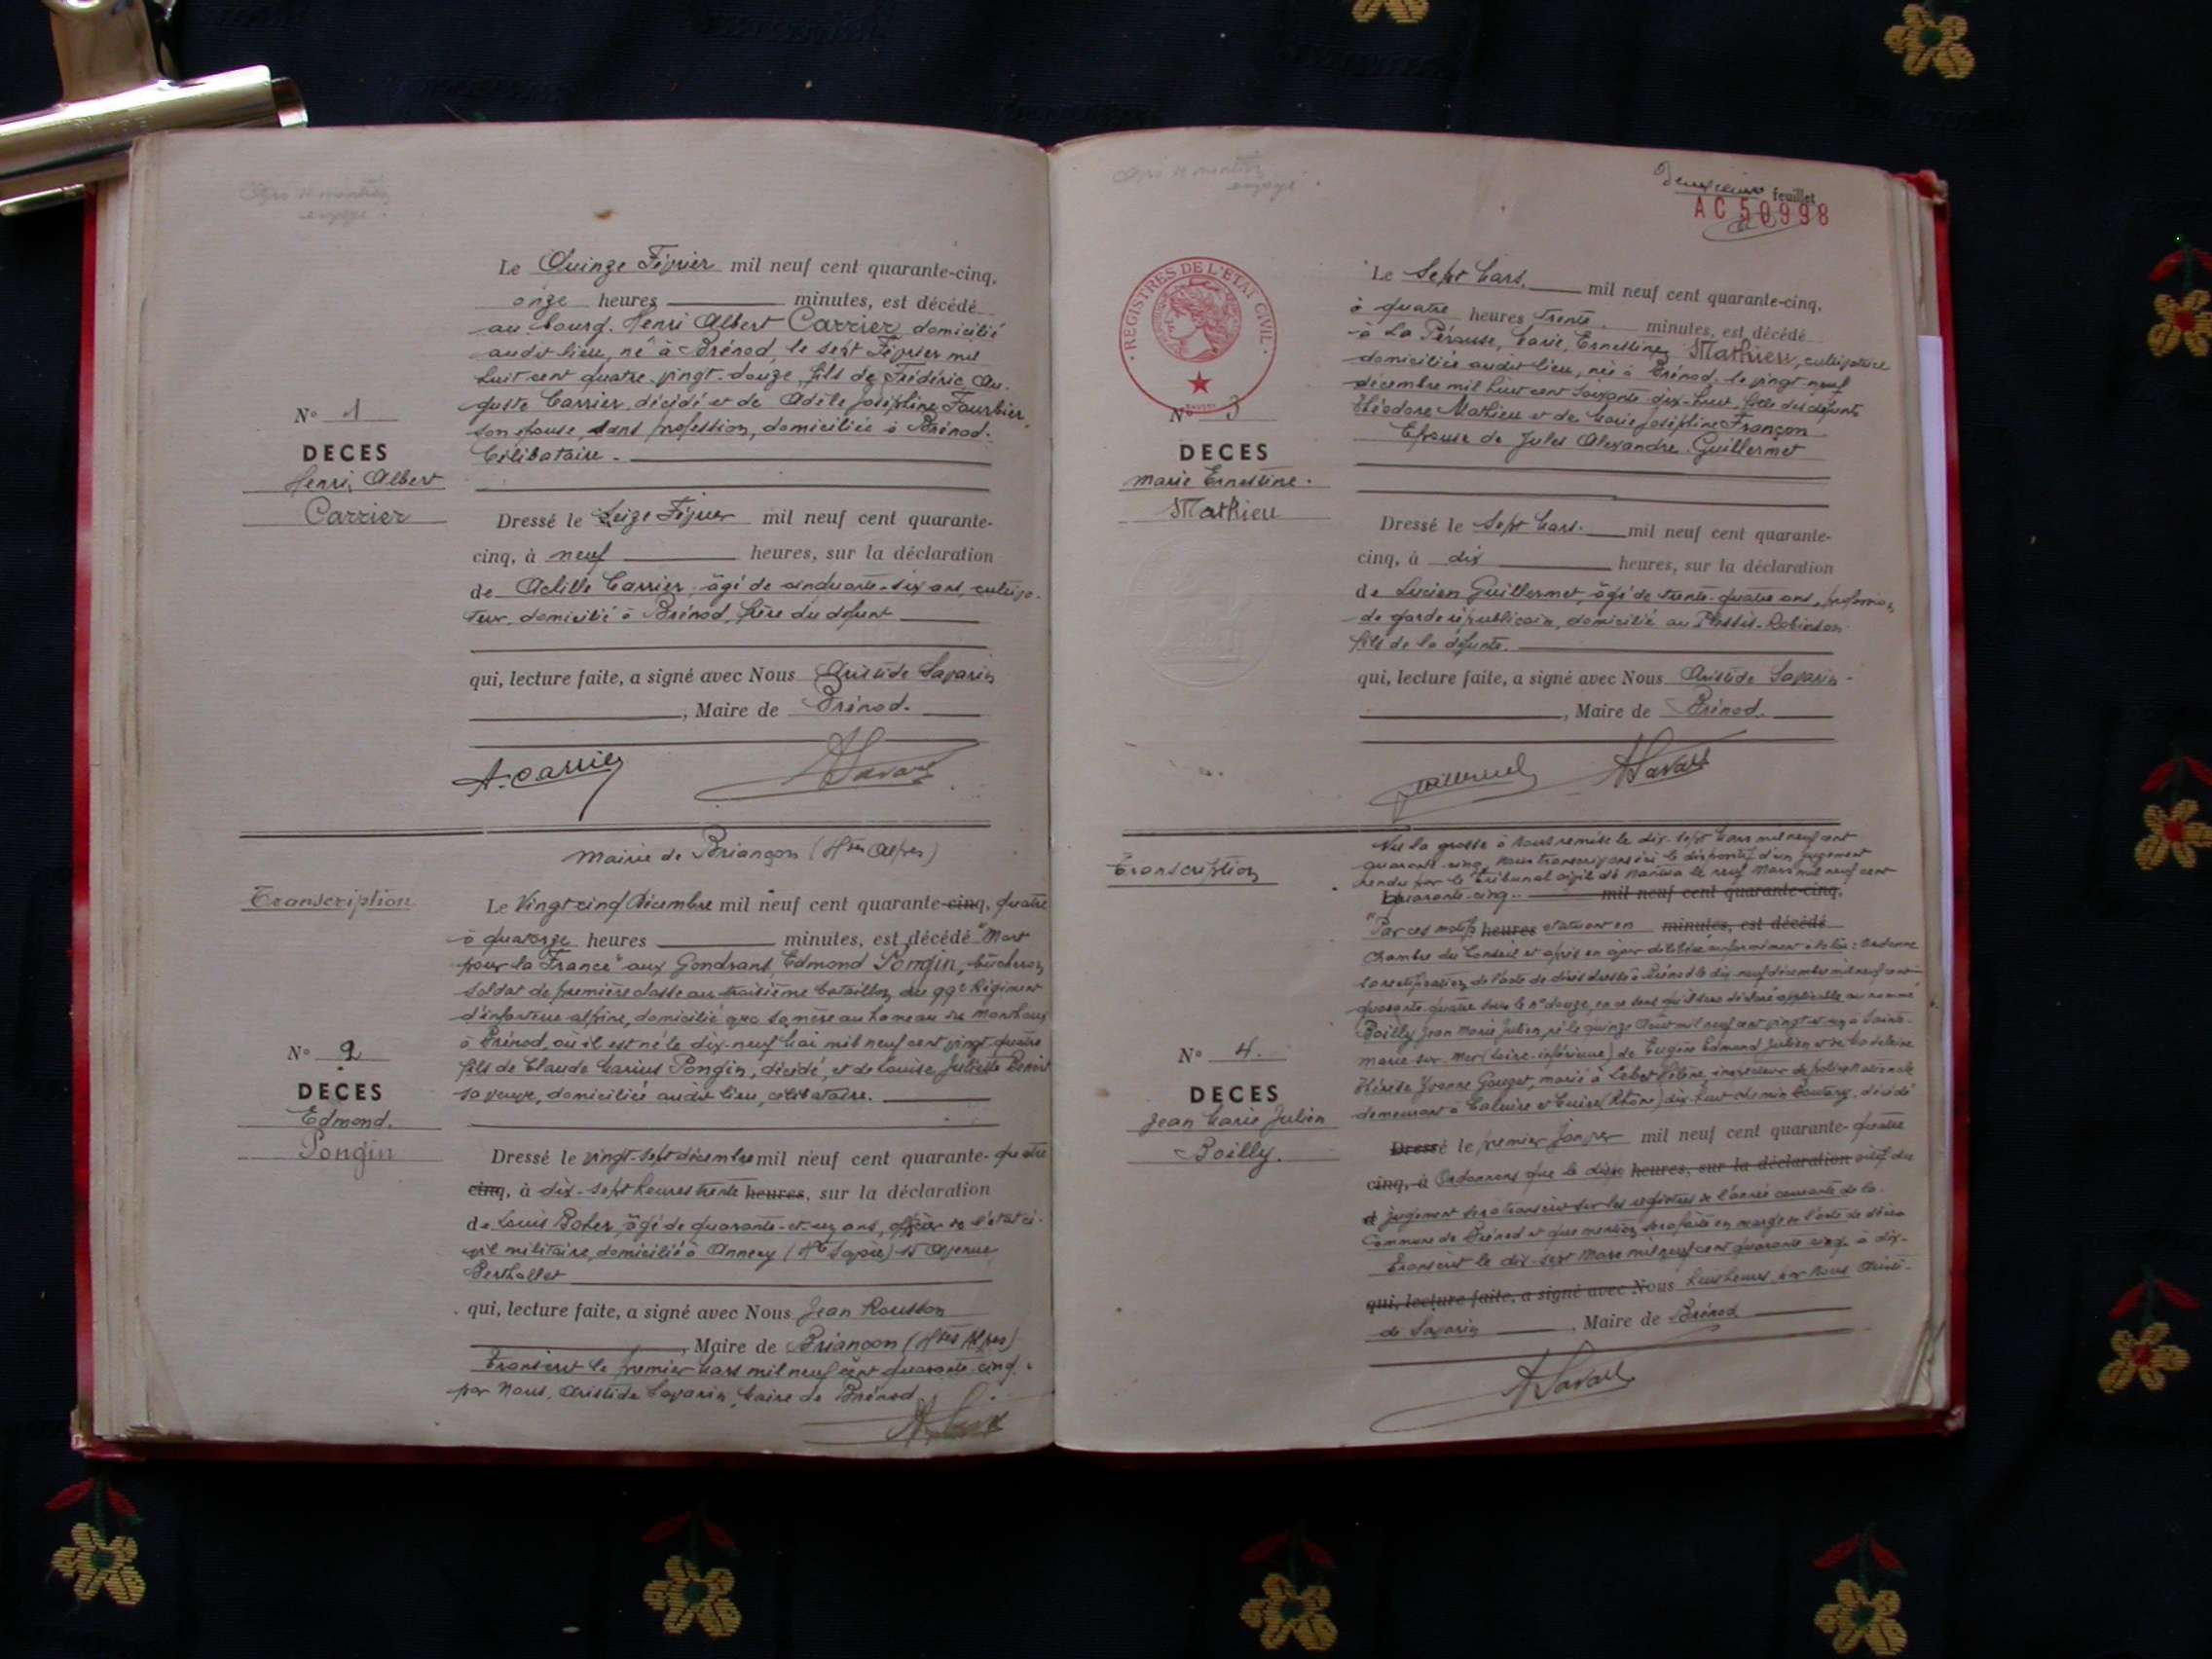 Le Quinze Février mil neuf cent quarante-cinq,
onze heures minutes, est décédé
au bourg. Henri Albert Carrier domicilié
audit lieu, né à Brénod, le sept Février mil
huit cent quatre-vingt-douze, fils de Frédéric, Au-
guste Carrier, décédé et de Adèle Joséphine Fourbier,
son épouse, sans profession, domiciliée à Brénod.
Célibataire.
N° 1
DECES
Henri, Albert
Carrier
Dressé le Seize Février mil neuf cent quarante-
cinq, à neuf heures, sur la déclaration
de Achille Carrier, âgé de cinquante-six ans, cultiva-
teur, domicilié à Brénod, frère du défunt
qui, lecture faite, a signé avec Nous Aristide Savarin
, Maire de Brénod.
A. Carrier
Mairie de Briançon (Htes Alpes)
Transcription
Le Vingt cinq Décembre mil neuf cent quarante-cinq, quatre
à quatorze heures minutes, est décédé "Mort
pour la France" aux Gondrans, Edmond Pongin, bûcheron,
soldat de première classe au troisième bataillon du 99e Régiment
d'infanterie alpine, domicilié avec sa mère au hameau de
à Brénod, où il est né le dix-neuf Mai mil neuf cent vingt quatre
fils de Claude Marius Pongin, décédé, et de Louise Juliette Benoit
sa veuve, domiciliée audit lieu, célibataire.
N° 2
DECES
Edmond.
Pongin
Dressé le vingt-sept décembre mil neuf cent quarante-quatre
cinq, à dix-sept heures trente heures, sur la déclaration
de Louis âgé de quarante-et-un ans, officier de l'état ci-
vil militaire, domicilié à Annecy (Hte Savoie) 15 Avenue
Berthollet
qui, lecture faite, a signé avec Nous Jean Rousson
, Maire de Briançon (Htes Alpes)
Transcrit le premier Mars mil neuf cent quarante-cinq.
par Nous, Aristide Savarin, Maire de Brénod
Deuxième feuillet
AC 50998
REGISTRES DE L'ETAT CIVIL
Le Sept Mars. mil neuf cent quarante-cinq,
à quatre heures trente. minutes, est décédé
à La Pérouse, Marie, Ernestine, Mathieu, cultivatrice
domiciliée audit lieu, née à Brénod, le vingt neuf
décembre mil huit cent soixante-dix-huit, fille des défunts
Théodore Mathieu et de Marie Joséphine Françon
Epouse de Jules Alexandre Guillermet
N° 3
DECES
Marie Ernestine.
Mathieu
Dressé le Sept Mars. mil neuf cent quarante-
cinq, à dix heures, sur la déclaration
de Lucien Guillermet, âgé de trente-quatre ans, profession
de garde républicain, domicilié au Plessis-Robinson
fils de la défunte.
qui, lecture faite, a signé avec Nous Aristide Savarin
, Maire de Brénod.
Transcription
Vu la grosse à nous remise le dix-sept Mars mil neuf cent
quarante-cinq, nous transcrivons ici le dispositif d'un jugement
rendu par le Tribunal civil de Nantua le neuf Mars mil neuf cent
Le quarante-cinq. mil neuf cent quarante-cinq,
"Par ces motifs heures statuant en minutes, est décédé
Chambre du Conseil et après en avoir délibéré conformément à la loi: Ordonne
la rectification de l'acte de décès dressé à Brénod le dix-neuf décembre mil neuf cent
quarante-quatre sous le n° douze, en ce sens qu'il sera déclaré applicable au nommé
Boilly Jean Marie Julien, né le quinze Août mil neuf cent vingt-et-un à Sainte-
Marie-sur-Mer (Loire-inférieure) de Eugène Edmond Julien et de Madeleine
Thérèse Yvonne Gouzet, marié à Hélène, inspecteur de police Nationale
demeurant à Caluire et Cuire (Rhône) dix-huit chemin décédé
N° 4.
DECES
Jean Marie Julien
Boilly.
Dressé le premier mil neuf cent quarante-quatre
cinq, à Ordonnons que le dispo heures, sur la déclaration sitif du
d jugement sera transcrit sur les registres de l'année courante de la
Commune de Brénod et que mention sera faite en marge de l'acte de décès
Transcrit le dix-sept Mars mil neuf cent quarante cinq à dix-
qui, lecture faite, a signé avec Nous huit heures, par nous Aristi-
de Savarin , Maire de Brénod